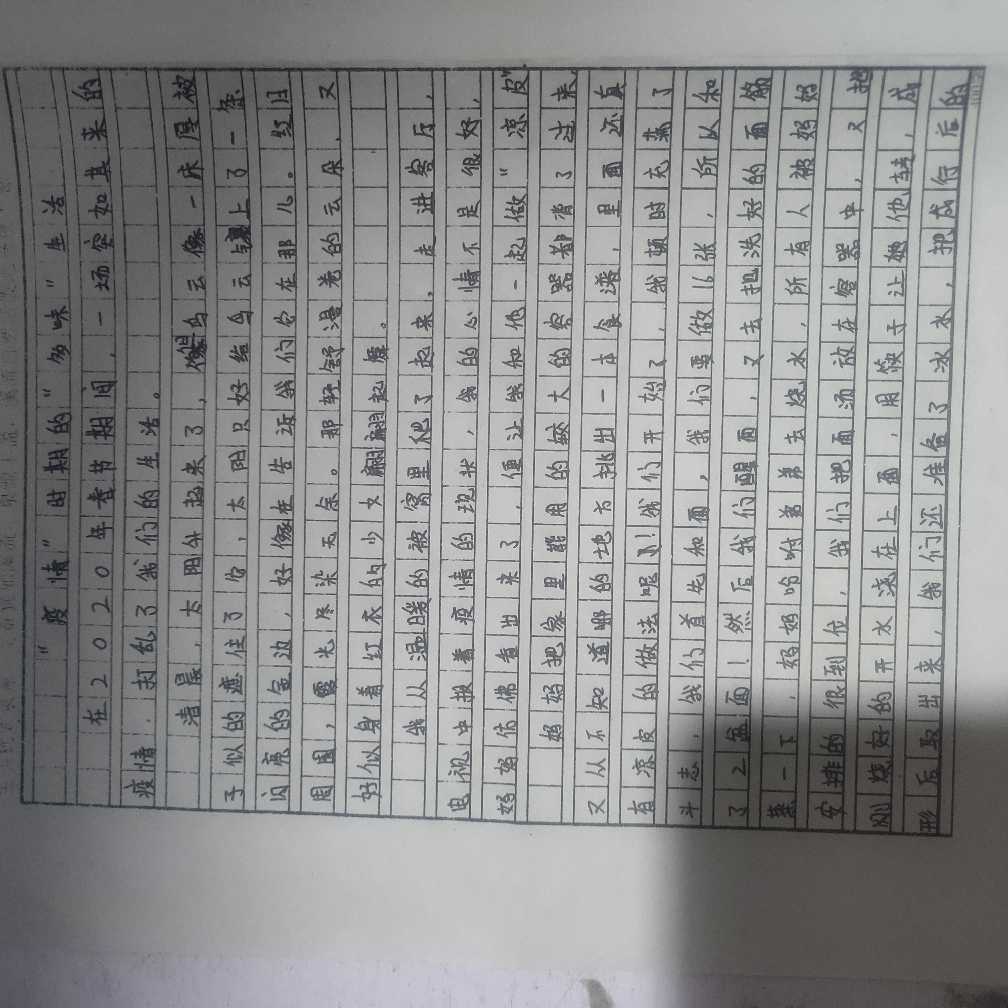 "疫情"时期的"多味"生活
在2020年春节期间，一场突如其来的
疫情，打乱了我们的生活。
清晨，太阳升起来了，乌云像一床厚被
子似的遮住了它，太阳只好给乌云镶上了一条
闪亮的金边，好像在告诉我们它在那儿。红日
周围，霞光尽染无余。那轻舒漫卷的云朵，又
好似身着红衣的少女翩翩起舞。
我从温暖的被窝里爬了起来，走进客厅，
电视中报着疫情的现状，我的心情不是很好，
妈妈仿佛看出来了，便让我和他一起做"凉皮"
妈妈把家里能用的较大的容器都肖了过来
又从不知道哪的地方找出一本食谱，里面还真
有凉皮的做法呢！我们开始了，我顿时充满了
斗志，我们首先和面，我们要做16张，所以和
了2盆面！然后我们醒面，又去把洗好的面筋
蒸一下，妈妈吩咐弟弟去烧水，所有人被妈妈
安排的很到位，我们把面汤放在容器中，又把
刚烧好的开水浇在上面，用筷子让她他转，成
形后取出来，我们还准备了冰水，把成行后的